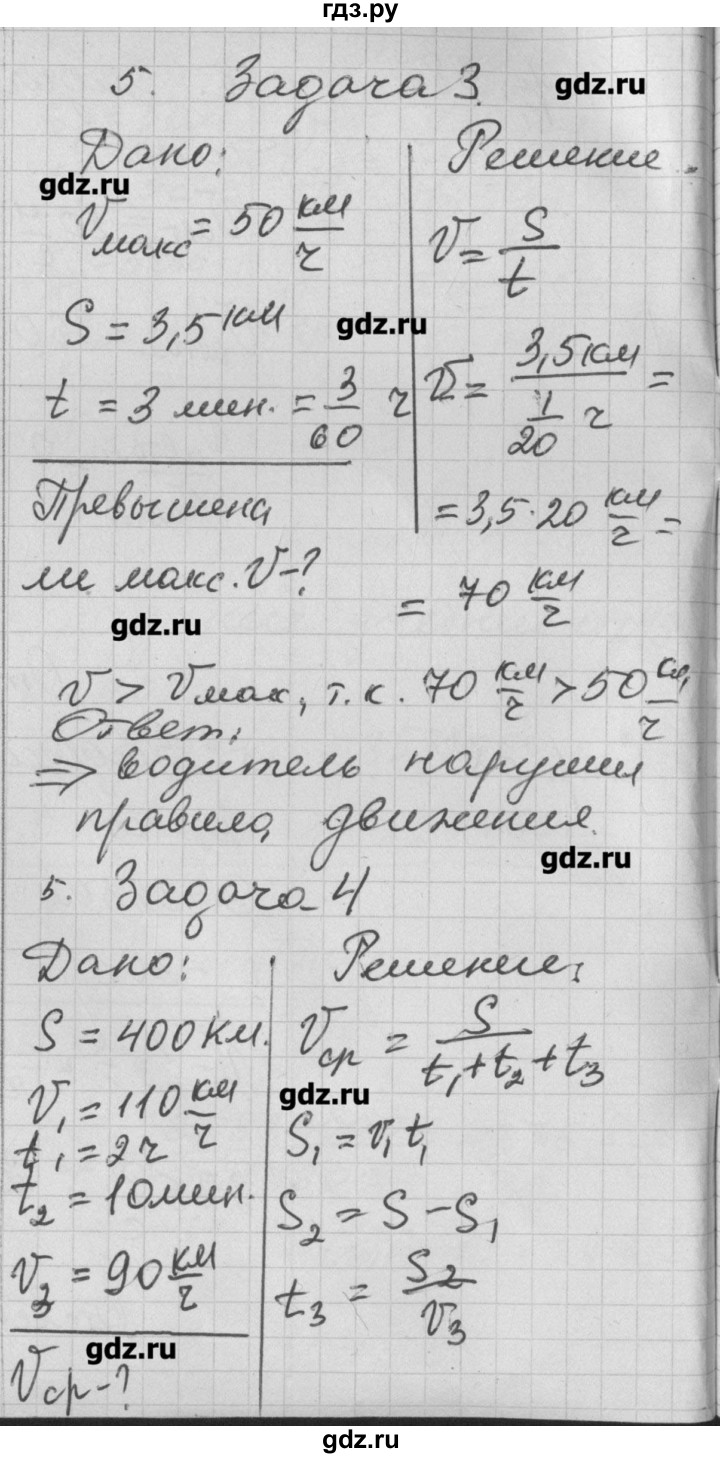 гдз.ру
5. Задача 3.
gdz.ru
Дано:
gdz.ru
Vмакс = 50 км/ч
S = 3,5 км
gdz.ru
t = 3 мин. = 3/60 ч
Превышена
ли макс. V-?
gdz.ru
Решение.
V = S/t
V = 3,5 км / 1/20 ч =
= 3,5 · 20 км/ч =
= 70 км/ч
V > Vмак, т.к. 70 км/ч > 50 км/ч
Ответ:
⇒ водитель нарушил
правила движения.
gdz.ru
5. Задача 4
Дано:
S = 400 км.
V₁ = 110 км/ч
t₁ = 2 ч
t₂ = 10 мин.
V₃ = 90 км/ч
gdz.ru
Vср-?
Решение:
Vср = S / t₁+t₂+t₃
gdz.ru
S₁ = v₁t₁
S₂ = S - S₁
t₃ = S₂/v₃
gdz.ru